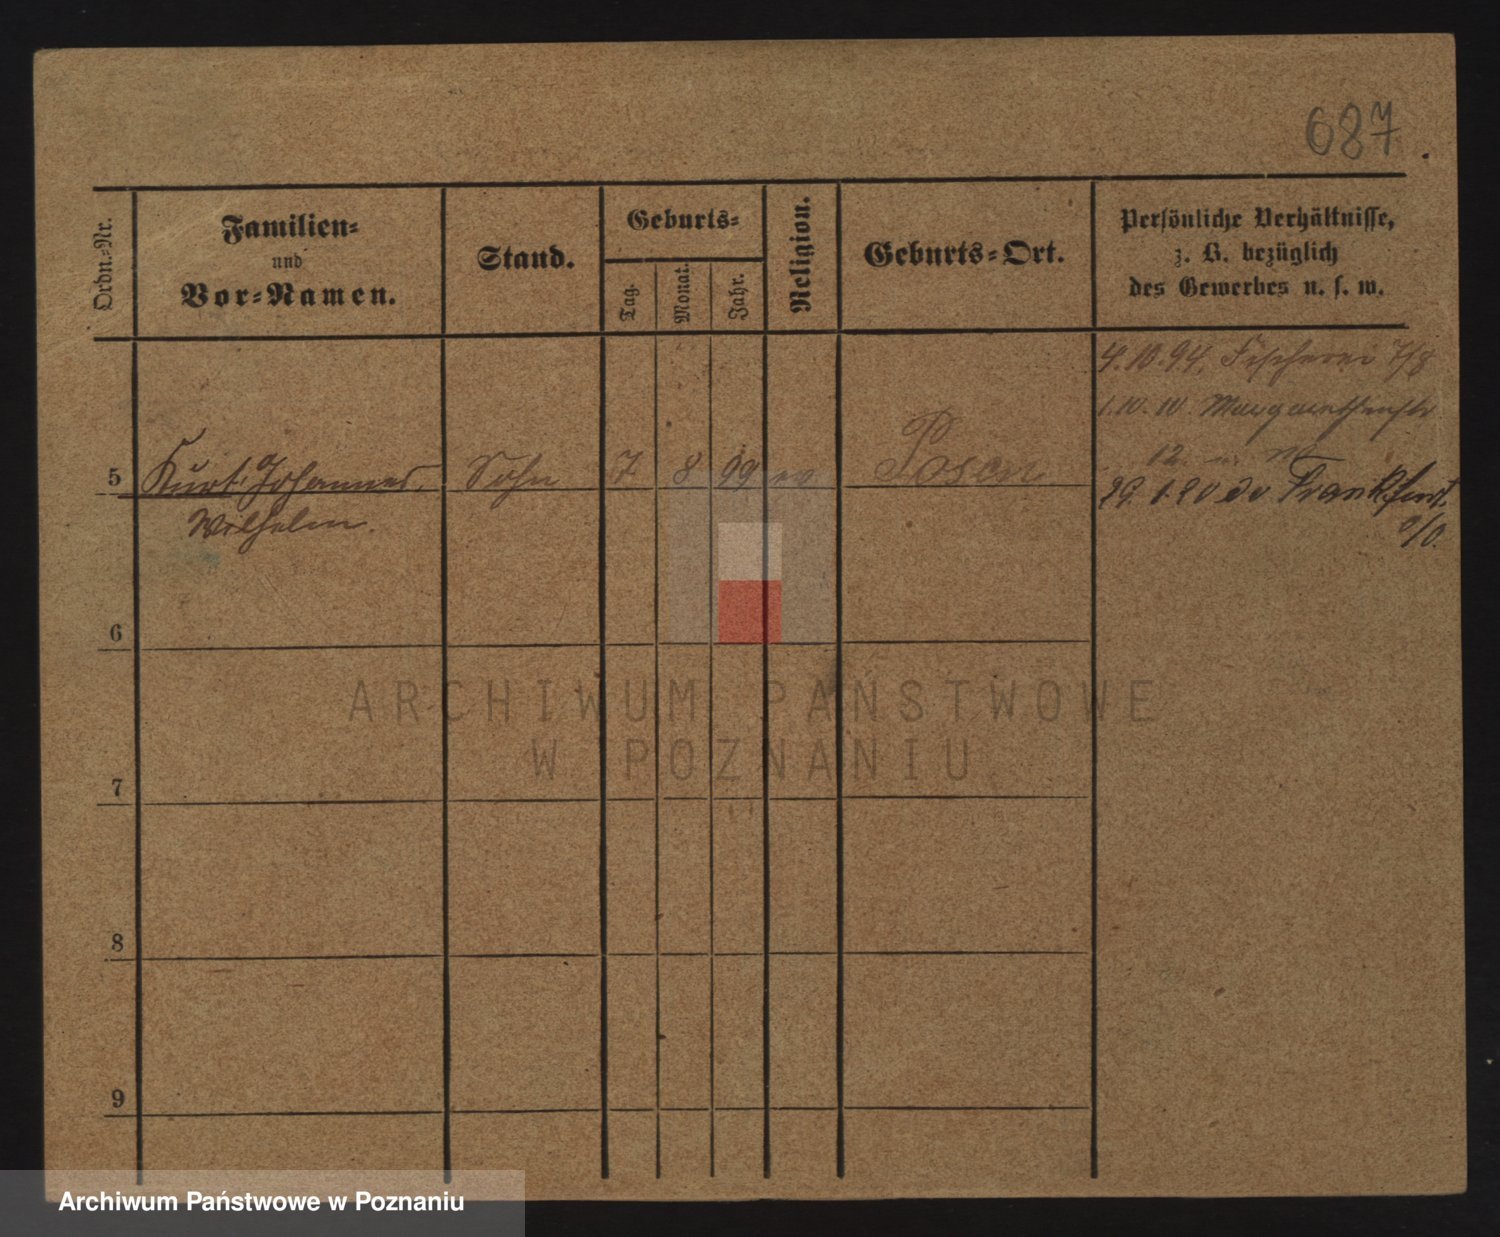 687
Ordn.-Nr.
Familien-
und
Vor-Namen.
Stand.
Geburts-
Tag.
Monat.
Jahr.
Religion.
Geburts-Ort.
Persönliche Verhältnisse,
z. B. bezüglich
des Gewerbes u. s. w.
4.10.94. Fischerei 7/8
1.10.10. Margarethenstr
12
5 Kurt Johannes, Sohn 7 8 99 ev Posen
Wilhelm.
29.1.20 Frankfurt
a/O.
6
7
8
9
ARCHIWUM PAŃSTWOWE
W POZNANIU
Archiwum Państwowe w Poznaniu